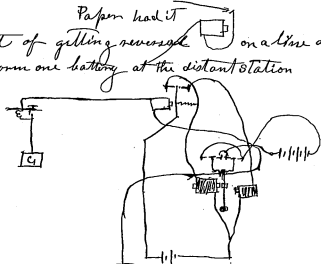 Paper had it
t of getting reversal on a line o
orm one battery at the distant station
G